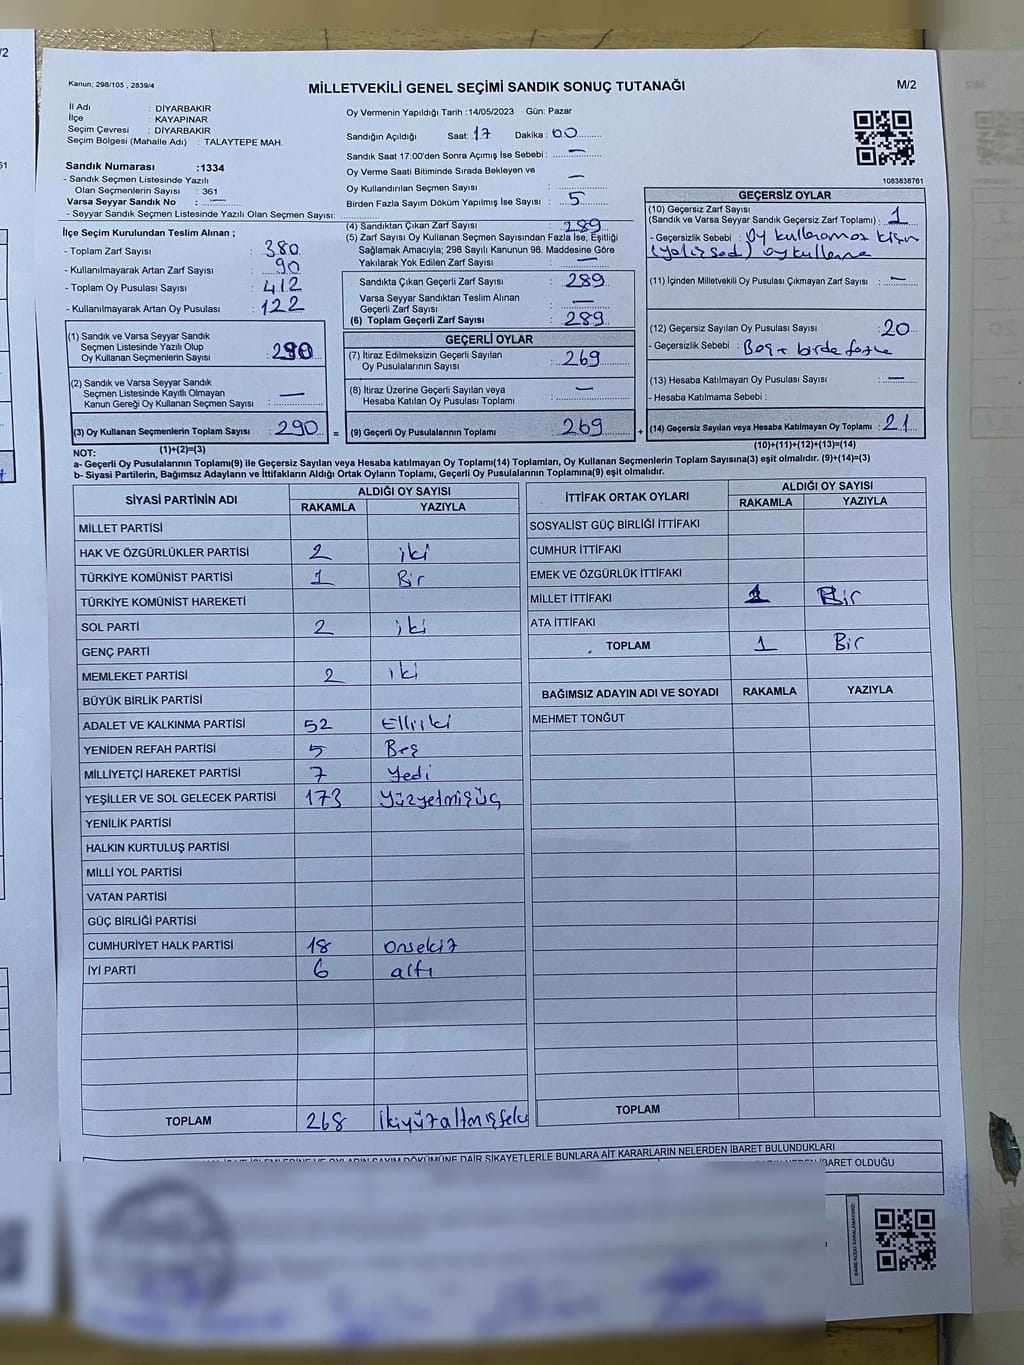 /2
Kanun; 298/105 , 2839/4
MİLLETVEKİLİ GENEL SEÇİMİ SANDIK SONUÇ TUTANAĞI
M/2
İl Adı : DİYARBAKIR
İlçe : KAYAPINAR
Seçim Çevresi : DİYARBAKIR
Seçim Bölgesi (Mahalle Adı) : TALAYTEPE MAH.
Sandık Numarası :1334
- Sandık Seçmen Listesinde Yazılı
Olan Seçmenlerin Sayısı : 361
Varsa Seyyar Sandık No : —
- Seyyar Sandık Seçmen Listesinde Yazılı Olan Seçmen Sayısı:
Oy Vermenin Yapıldığı Tarih :14/05/2023 Gün: Pazar
Sandığın Açıldığı Saat: 17 Dakika : 00
Sandık Saat 17:00'den Sonra Açımış İse Sebebi : —
Oy Verme Saati Bitiminde Sırada Bekleyen ve
Oy Kullandırılan Seçmen Sayısı : —
Birden Fazla Sayım Döküm Yapılmış İse Sayısı : 5
1083838761
İlçe Seçim Kurulundan Teslim Alınan ;
- Toplam Zarf Sayısı : 380
- Kullanılmayarak Artan Zarf Sayısı : 90
- Toplam Oy Pusulası Sayısı : 412
- Kullanılmayarak Artan Oy Pusulası : 122
(1) Sandık ve Varsa Seyyar Sandık
Seçmen Listesinde Yazılı Olup
Oy Kullanan Seçmenlerin Sayısı : 290
(2) Sandık ve Varsa Seyyar Sandık
Seçmen Listesinde Kayıtlı Olmayan
Kanun Gereği Oy Kullanan Seçmen Sayısı : —
(3) Oy Kullanan Seçmenlerin Toplam Sayısı : 290 =
(4) Sandıktan Çıkan Zarf Sayısı : 289
(5) Zarf Sayısı Oy Kullanan Seçmen Sayısından Fazla İse, Eşitliği
Sağlamak Amacıyla; 298 Sayılı Kanunun 98. Maddesine Göre
Yakılarak Yok Edilen Zarf Sayısı : —
Sandıkta Çıkan Geçerli Zarf Sayısı : 289
Varsa Seyyar Sandıktan Teslim Alınan
Geçerli Zarf Sayısı : —
(6) Toplam Geçerli Zarf Sayısı : 289
GEÇERLİ OYLAR
(7) İtiraz Edilmeksizin Geçerli Sayılan
Oy Pusulalarının Sayısı : 269
(8) İtiraz Üzerine Geçerli Sayılan veya
Hesaba Katılan Oy Pusulası Toplamı : —
(9) Geçerli Oy Pusulalarının Toplamı : 269 +
GEÇERSİZ OYLAR
(10) Geçersiz Zarf Sayısı
(Sandık ve Varsa Seyyar Sandık Geçersiz Zarf Toplamı) : 1
- Geçersizlik Sebebi : Oy
(11) İçinden Milletvekili Oy Pusulası Çıkmayan Zarf Sayısı : —
(12) Geçersiz Sayılan Oy Pusulası Sayısı : 20
- Geçersizlik Sebebi : Boş + birde fazla
(13) Hesaba Katılmayan Oy Pusulası Sayısı : —
- Hesaba Katılmama Sebebi :
(14) Geçersiz Sayılan veya Hesaba Katılmayan Oy Toplamı : 21
NOT: (1)+(2)=(3)
(10)+(11)+(12)+(13)=(14)
a- Geçerli Oy Pusulalarının Toplamı(9) ile Geçersiz Sayılan veya Hesaba katılmayan Oy Toplamı(14) Toplamları, Oy Kullanan Seçmenlerin Toplam Sayısına(3) eşit olmalıdır. (9)+(14)=(3)
b- Siyasi Partilerin, Bağımsız Adayların ve İttifakların Aldığı Ortak Oyların Toplamı, Geçerli Oy Pusulalarının Toplamına(9) eşit olmalıdır.
SİYASİ PARTİNİN ADI ALDIĞI OY SAYISI
RAKAMLA YAZIYLA
MİLLET PARTİSİ
HAK VE ÖZGÜRLÜKLER PARTİSİ 2 iki
TÜRKİYE KOMÜNİST PARTİSİ 1 Bir
TÜRKİYE KOMÜNİST HAREKETİ
SOL PARTİ 2 iki
GENÇ PARTİ
MEMLEKET PARTİSİ 2 iki
BÜYÜK BİRLİK PARTİSİ
ADALET VE KALKINMA PARTİSİ 52 Elliiki
YENİDEN REFAH PARTİSİ 5 Beş
MİLLİYETÇİ HAREKET PARTİSİ 7 Yedi
YEŞİLLER VE SOL GELECEK PARTİSİ 173 Yüzyetmişüç
YENİLİK PARTİSİ
HALKIN KURTULUŞ PARTİSİ
MİLLİ YOL PARTİSİ
VATAN PARTİSİ
GÜÇ BİRLİĞİ PARTİSİ
CUMHURİYET HALK PARTİSİ 18 Onsekiz
İYİ PARTİ 6 altı
TOPLAM 268 İkiyüzaltmışseki
İTTİFAK ORTAK OYLARI ALDIĞI OY SAYISI
RAKAMLA YAZIYLA
SOSYALİST GÜÇ BİRLİĞİ İTTİFAKI
CUMHUR İTTİFAKI
EMEK VE ÖZGÜRLÜK İTTİFAKI
MİLLET İTTİFAKI 1 Bir
ATA İTTİFAKI
TOPLAM 1 Bir
BAĞIMSIZ ADAYIN ADI VE SOYADI RAKAMLA YAZIYLA
MEHMET TONĞUT
TOPLAM
OYLARIN SAYIM DÖKÜMÜNE DAİR ŞİKAYETLERLE BUNLARA AİT KARARLARIN NELERDEN İBARET BULUNDUKLARI
İBARET OLDUĞU
KARE KODU KARALAMAYINIZ!